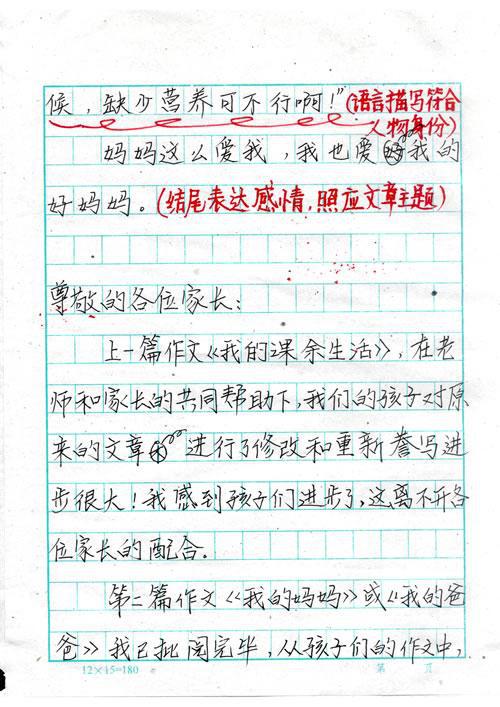 候，缺少营养可不行啊！”(语言描写符合
人物身份)
妈妈这么爱我，我也爱我的
好妈妈。(结尾表达感情，照应文章主题)
尊敬的各位家长：
上一篇作文《我的课余生活》，在老
师和家长的共同帮助下，我们的孩子对原
来的文章进行了修改和重新誊写进
步很大！我感到孩子们进步了，这离不开各
位家长的配合.
第二篇作文《我的妈妈》或《我的爸
爸》我已批阅完毕，从孩子们的作文中，
12×15=180
第 页